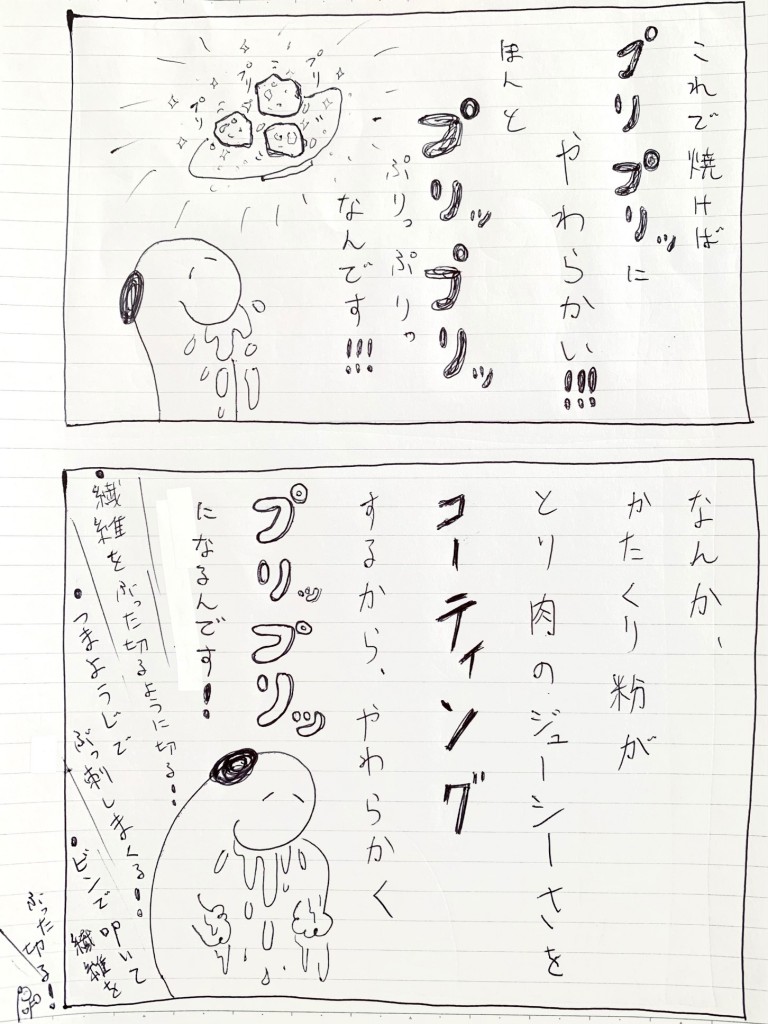 これで焼けば
プリプリッに
やわらかい!!!
ほんと
プリッププリッ
ぷりっぷりっ
なんです!!!
プリ
プリ
プリ
なんか、
かたくり粉が
とり肉のジューシーさを
コーティング
するから、やわらかく
プリップリッ
になるんです!
・繊維をぶった切るように切る!!
・つまようじで
ぶっ刺しまくる!!
・ビンで叩いて
繊維を
ぶった切る!